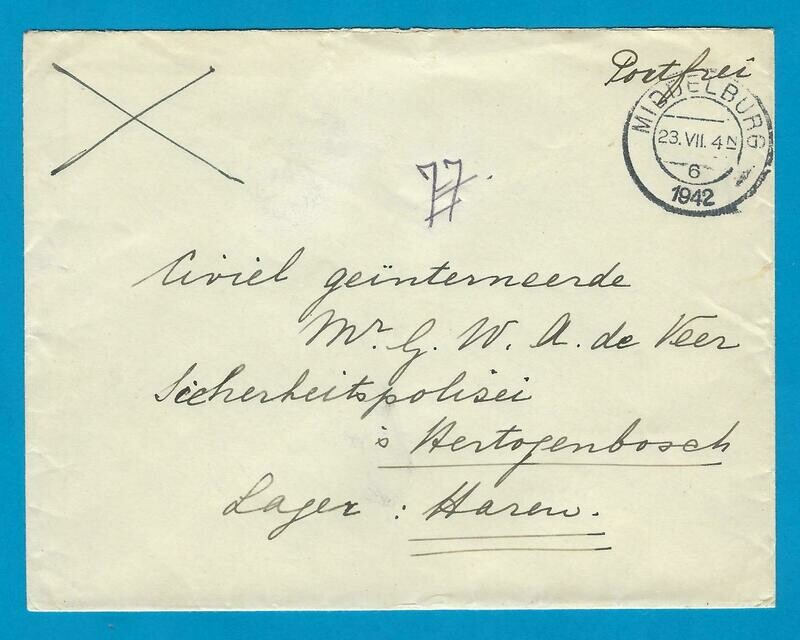 Portfrei
MIDDELBURG
23.VII. 4 N
6
1942
77.
Civiel geïnterneerde
Mr. G. W. A. de Veer
Sicherheitspolisei
's Hertogenbosch
Lager : Haren.